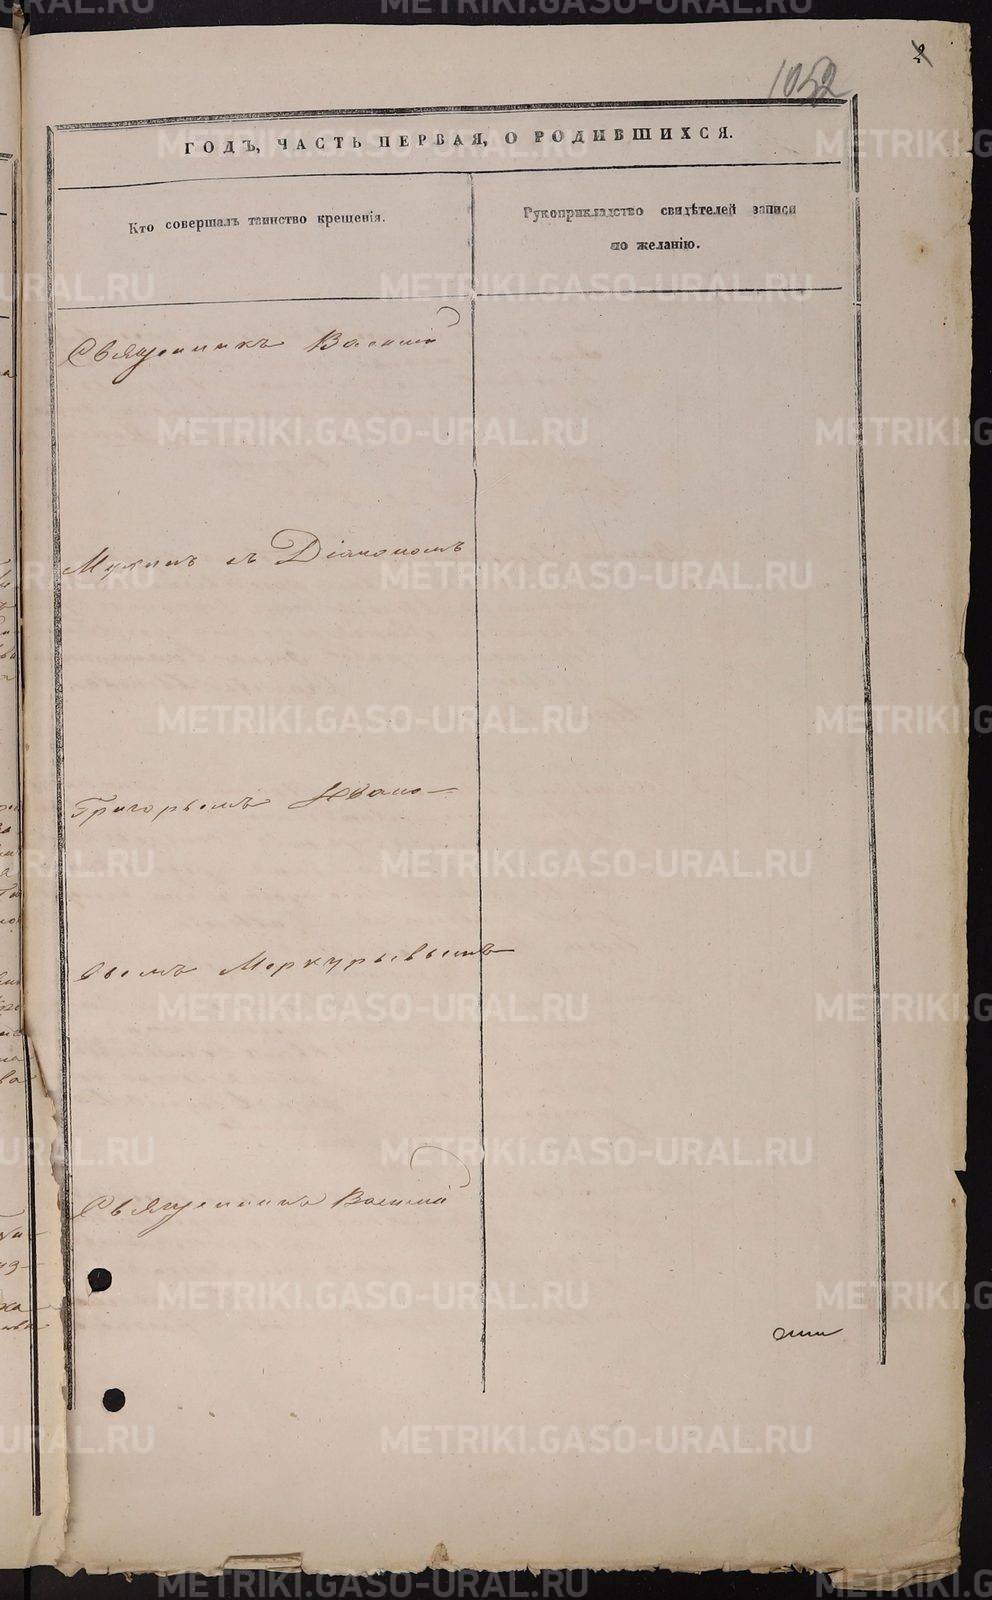 2
1052
ГОДЪ, ЧАСТЬ ПЕРВАЯ, О РОДИВШИХСЯ.
Кто совершалъ таинство крещенія.
Рукоприкладство свидѣтелей записи
по желанію.
Священникъ Василій
Мукинъ съ Діакономъ
Григорьемъ Ивано-
вымъ Меркурьевымъ
Священникъ Василій
METRIKI.GASO-URAL.RU